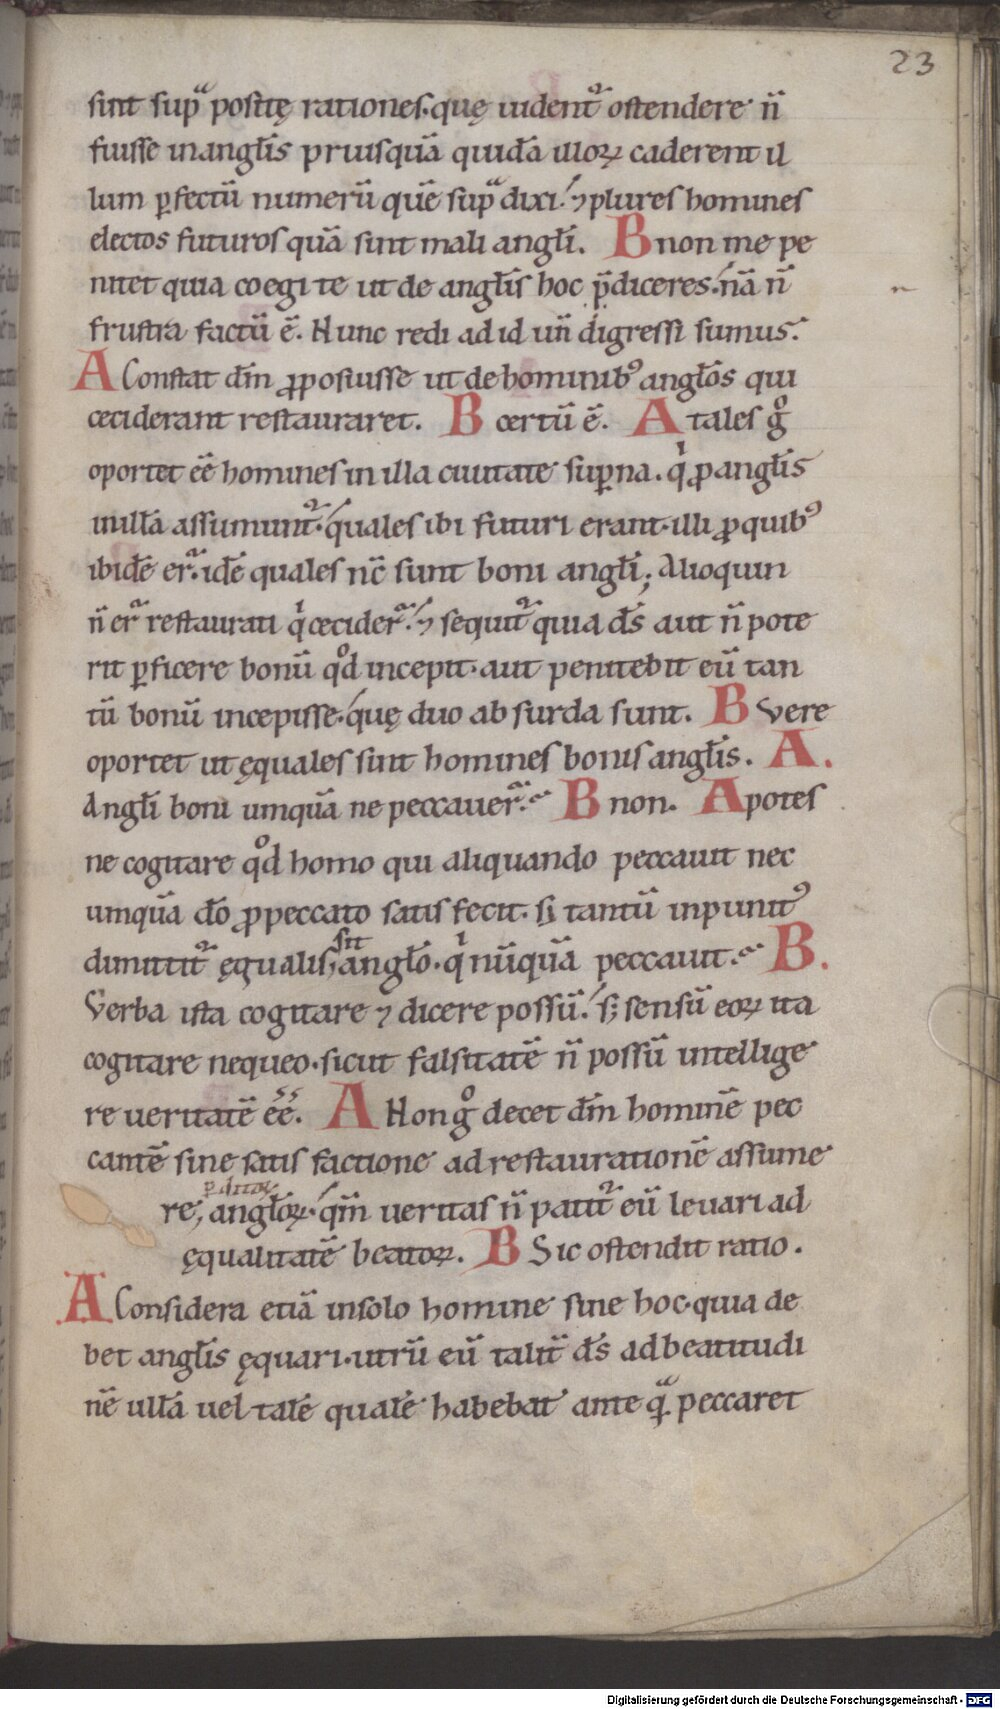 23
sint sup̲ᵃ positę rationes. quę uident᷑ ostendere n̄
fuisse in angl̄is priusquā quidā illoꝝ caderent il
lum ꝑfectū numerū quē sup̲ᵃ dixi. ⁊ plures homines
electos futuros quā sint mali angl̄i. B non me pe
nitet quia coegi te ut de angl̄is hoc p̄diceres. nā n̄
frustra factū ē. Nunc redi ad id un̄ digressi sumus.
A Constat dm̄ ꝓposuisse ut de hominibꝰ angl̄os qui
ceciderant restauraret. B certū ē. A tales gͦ
oportet ēē homines in illa ciuitate suꝑna. qͥ ꝓ angl̄is
in illā assumunt᷑. quales ibi futuri erant. illi ꝓ quibꝰ
ibidē erᷓ. idē quales nc̄ sunt boni angl̄i; Alioquin
n̄ erᷓ restaurati qͥ ceciderᷓ. ⁊ sequit᷑ quia d̄s aut n̄ pote
rit ꝑficere bonū qͦd incepit. aut penitebit eū tan
tū bonū incepisse. quę duo absurda sunt. B Vere
oportet ut ęquales sint homines bonis angl̄is. A.
Angl̄i boni umquā ne peccauerᷓ. B non. A potes
ne cogitare qͦd homo qui aliquando peccauit nec
umquā do̅ ꝓ peccato satis fecit. sꝫ tantū inpunitꝰ
dimittit᷑ ęqualis sit anglo̅. qͥ nūquā peccauit. B.
Verba ista cogitare ⁊ dicere possū. sꝫ sensū eoꝝ ita
cogitare nequeo. sicut falsitatē n̄ possū intellige
re ueritatē ēē. A Non gͦ decet dm̄ hominē pec
cantē sine satis factione ad restaurationē assume
ꝑditoꝝ
re, anglo̅ꝝ. qm̄ ueritas n̄ patit᷑ eū leuari ad
ęqualitatē beatoꝝ. B Sic ostendit ratio.
A Considera etiā in solo homine sine hoc. quia de
bet angl̄is ęquari. utrū eū talit̄ d̄s ad beatitudi
nē ullā uel talē qualē habebat ante qᷓ. peccaret
Digitalisierung gefördert durch die Deutsche Forschungsgemeinschaft - DFG